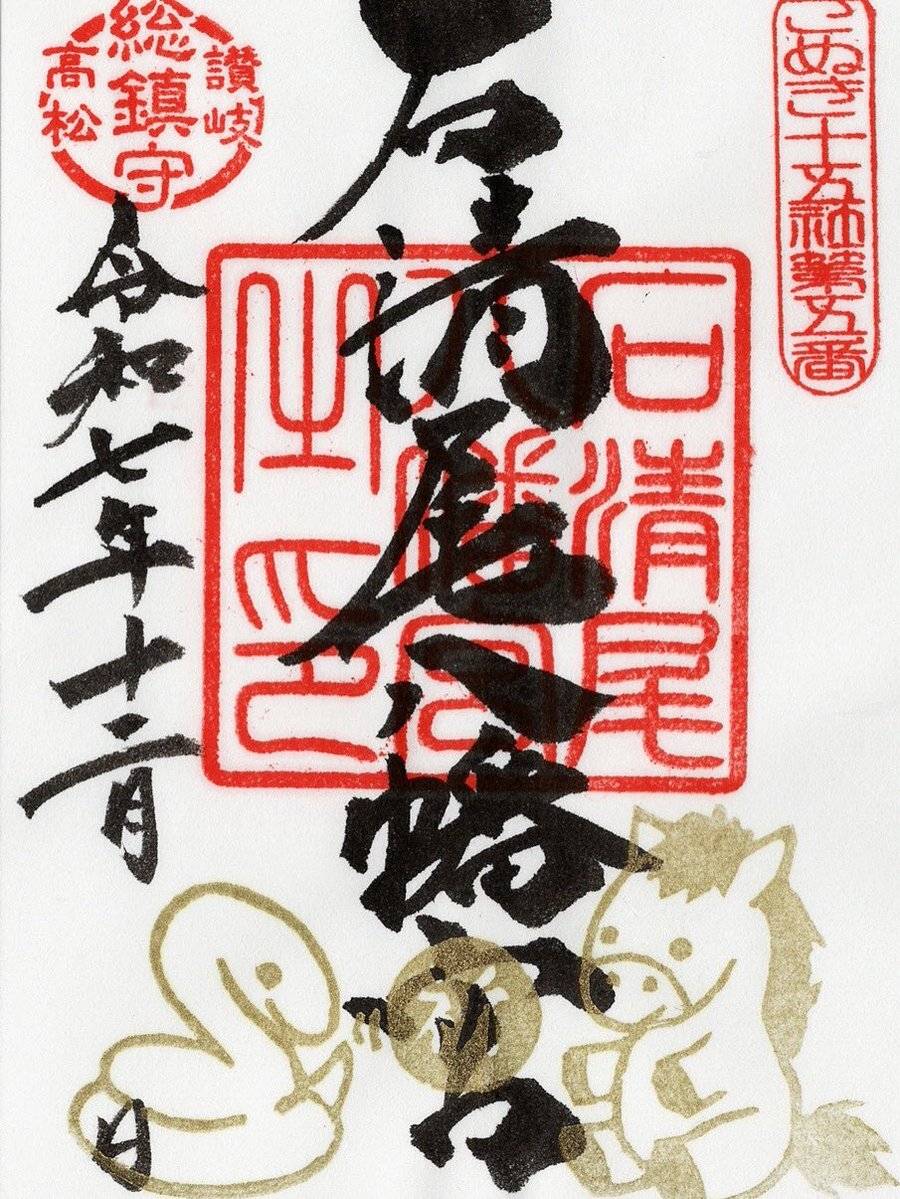 さぬき十五社第五番
石清尾八幡宮
石清尾
八幡宮
之印
讚岐
総鎮守
高松
令和七年十二月 日
祈